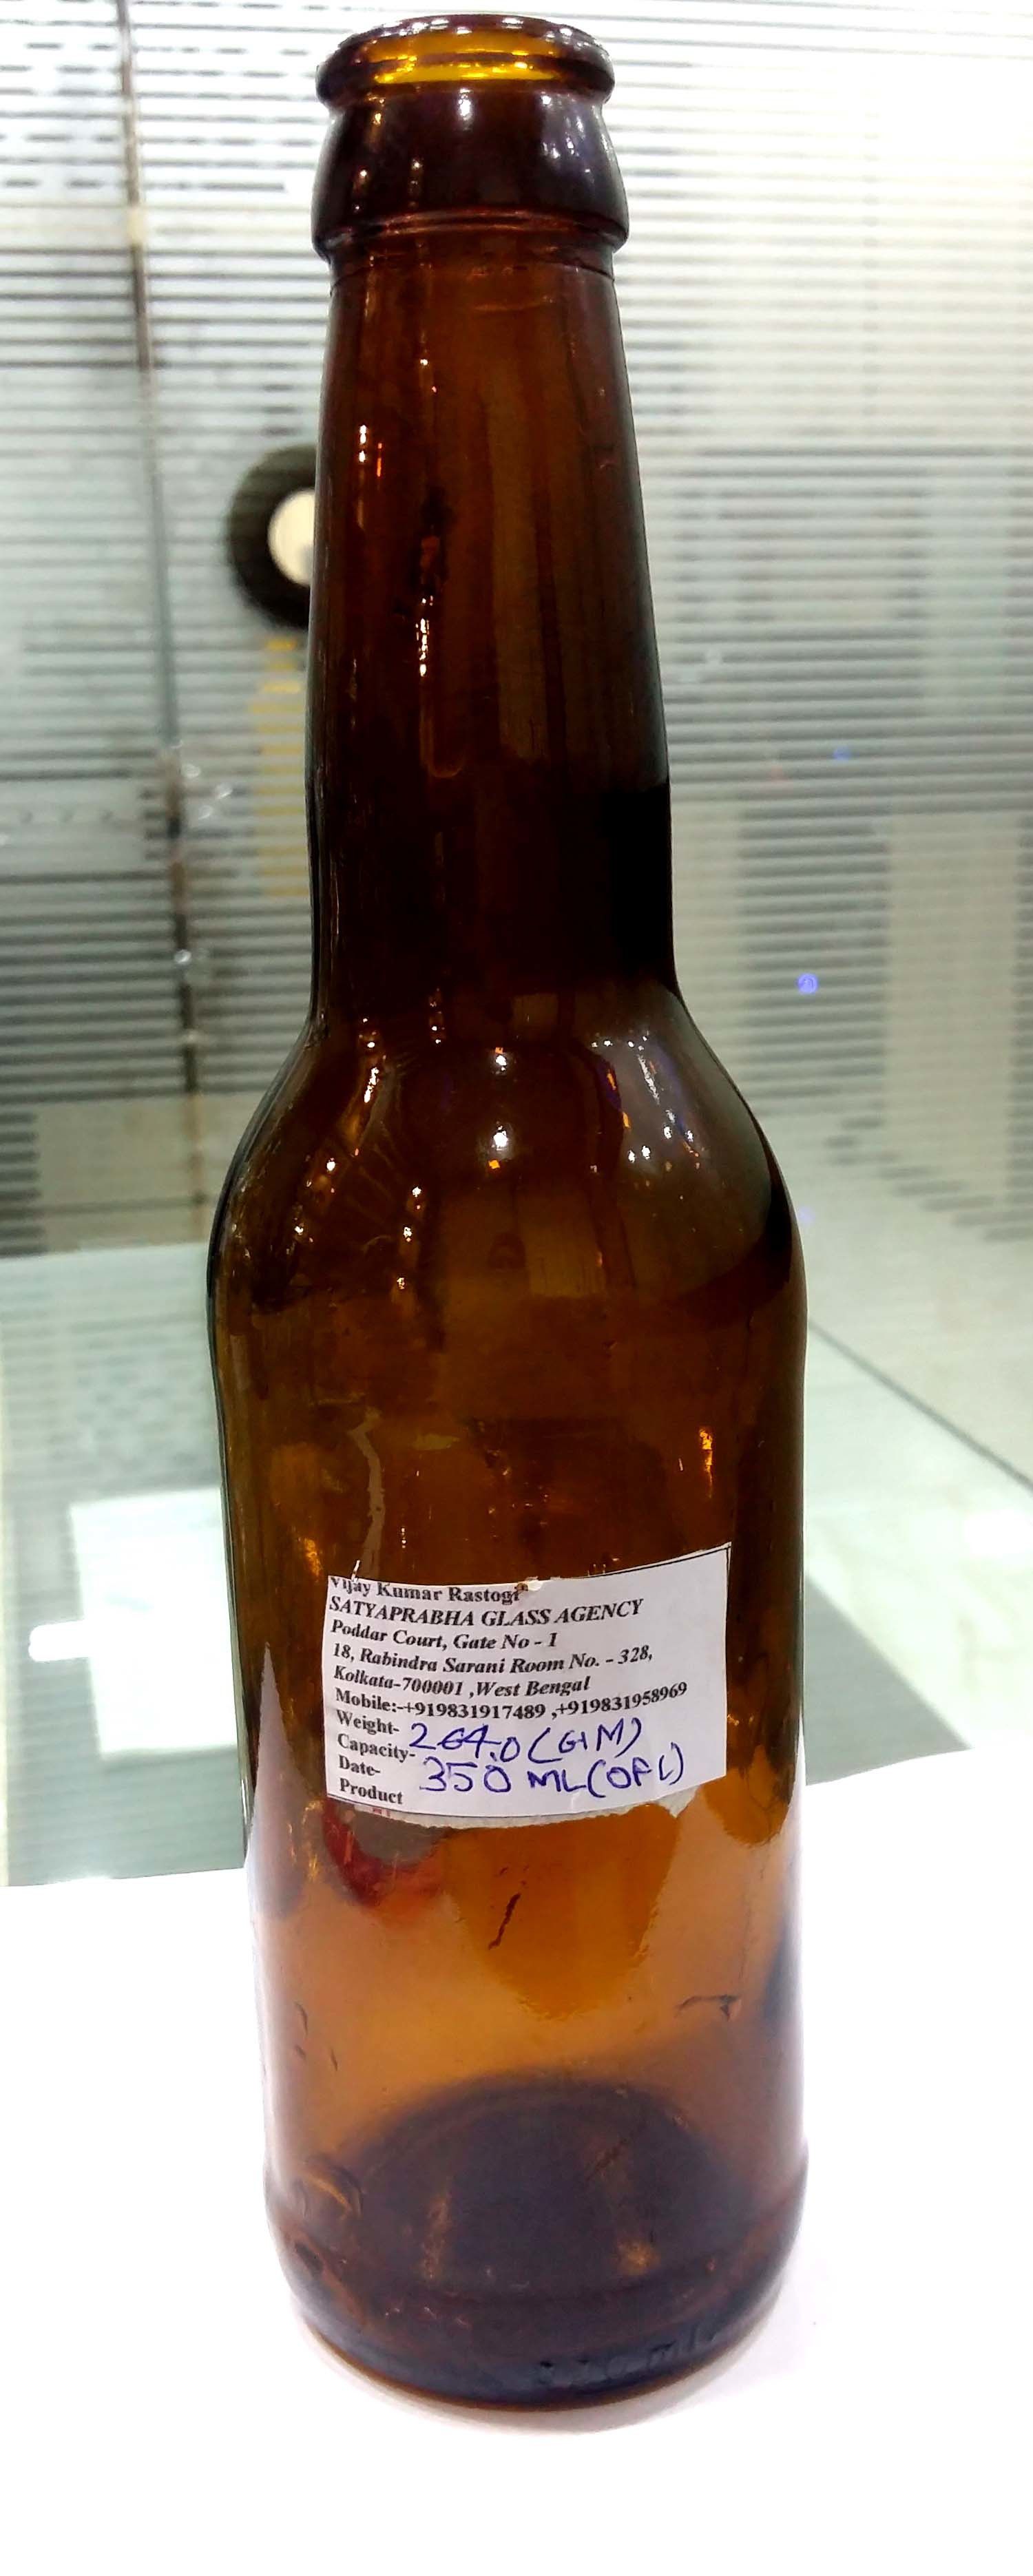 Vijay Kumar Rastogi
SATYAPRABHA GLASS AGENCY
Poddar Court, Gate No - 1
18, Rabindra Sarani Room No. - 328,
Kolkata-700001 ,West Bengal
Mobile:-+919831917489 ,+919831958969
Weight- 264.0 (GM)
Capacity- 350 ML (OFL)
Date-
Product